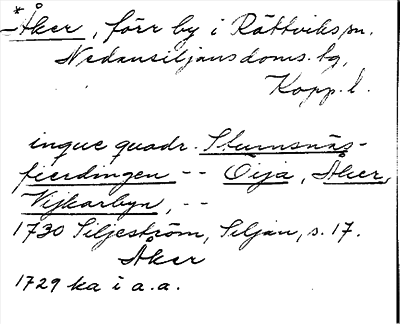 *Åker, förr by i Rättvikssn.
Nedansiljans doms.lg,
Kopp.l.
inque quadr. Stumsnäs-
fierdingen -- Öija, Åker,
Vijkarbyn, --
1730 Siljeström, Siljan, s. 17.
Åker
1729 ka i a.a.